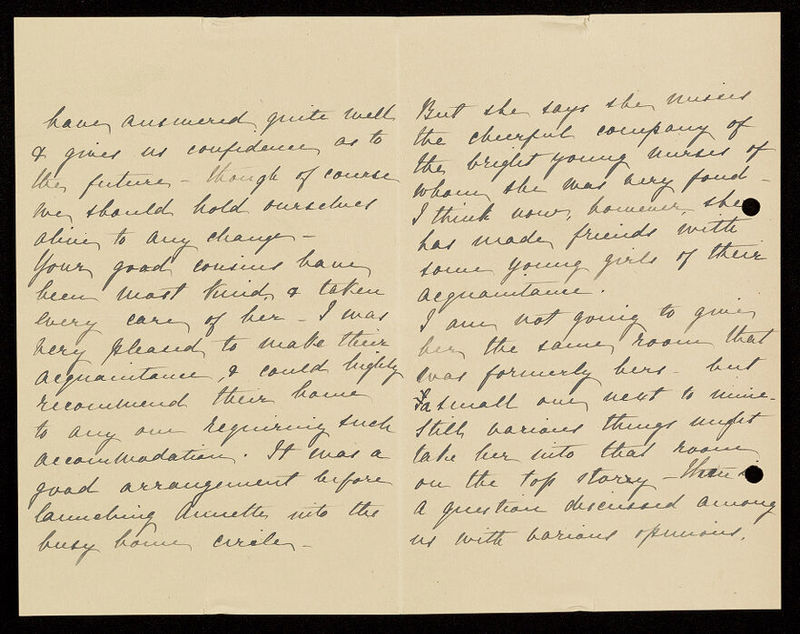 have answered quite well
& gives us confidence as to
the future – though of course
we should hold ourselves
alive to any change –
Your good cousins have
been most kind, & taken
every care of her – I was
very pleased to make their
acquaintance, & could highly
recommend their home
to any one requiring such
accommodation. It was a
good arrangement before
launching Annette into the
busy home circle –
But she says she misses
the cheerful company of
the bright young nurses of
whom she was very fond –
I think now, however, she
has made friends with
some young girls of their
acquaintance.
I am not going to give
her the same room that
was formerly hers – but
a small one next to mine –
Still various things might
take her into that room
on the top storey –
a question discussed among
us with various opinions.